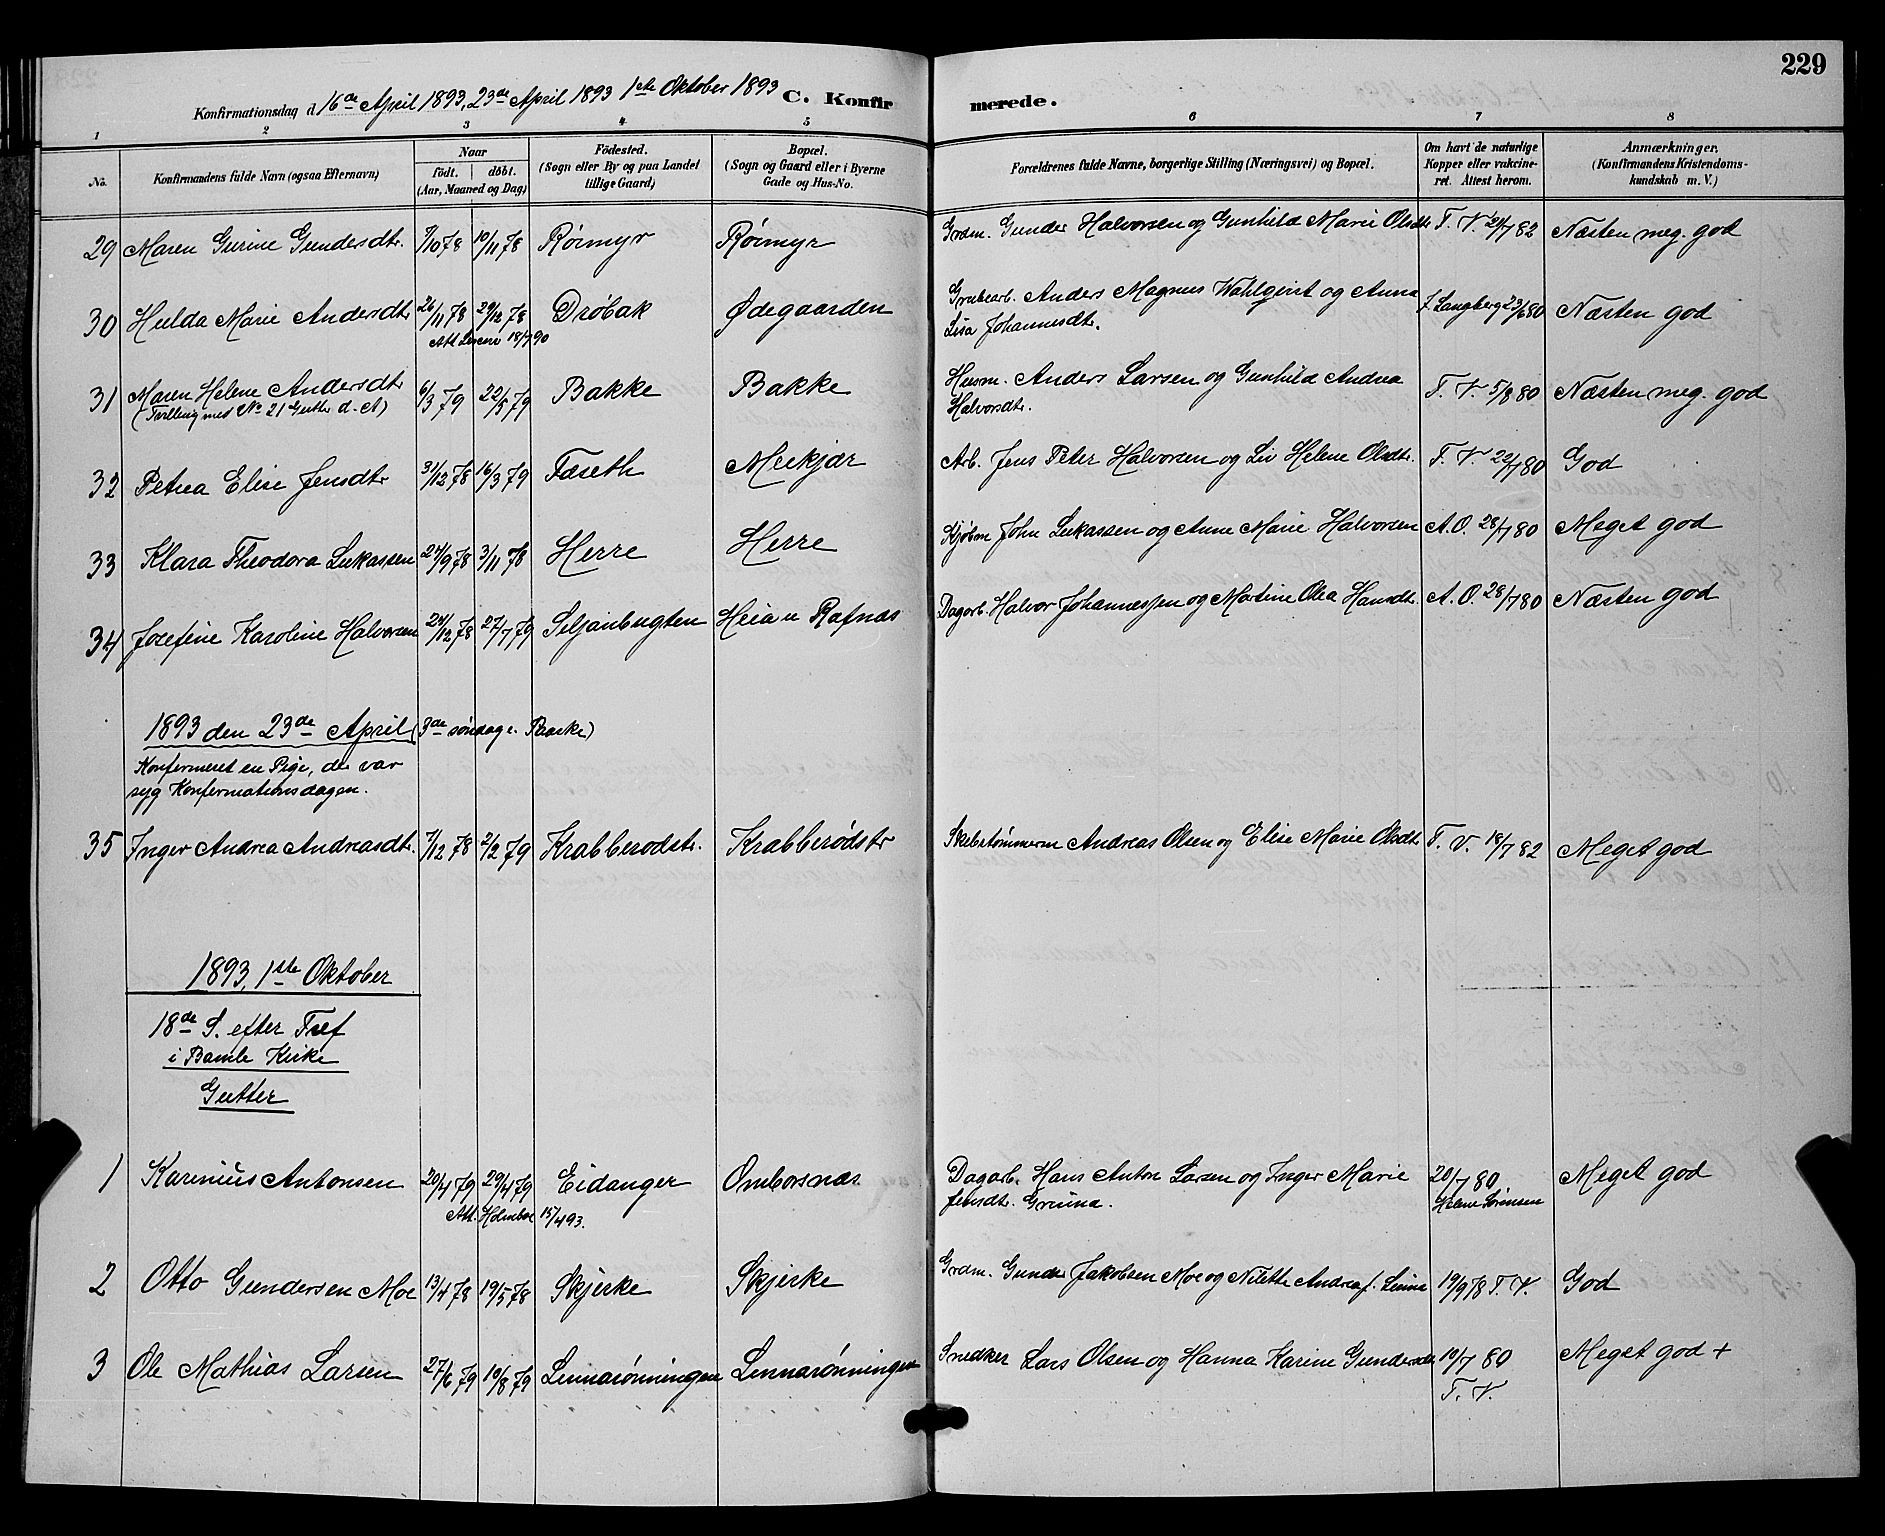 229
Konfirmationsdag d. 16de April 1893, 23de April 1893 1ste Oktober 1893 C. Konfirmerede.
1 2 3 4 5 6 7 8
No. Konfirmandens fulde Navn (ogsaa Efternavn) Naar født. døbt. (Aar, Maaned og Dag) Fødested. (Sogn eller By og paa Landet tillige Gaard) Bopæl. (Sogn og Gaard eller i Byerne Gade og Hus-No. Forældrenes fulde Navne, borgerlige Stilling (Næringsvei) og Bopæl. Om havt de naturlige Kopper eller vakcineret. Attest herom. Anmærkninger. (Konfirmandens Kristendomskundskab m. V.)
29 Maren Gurine Gundesdtr. 7/10 78 10/11 78 Rörmyr Rörmyr Grdm. Gunder Halvorsen og Gunhild Marie Olsdtr T. V. 21/7 82 Næsten meg. god
30 Hulda Marie Andersdtr 26/11 78 29/12 78 Dröbak Ødegaarden Grubearb. Anders Magnus Wahlqvist og Anna f. Langberg 23/6 80 Næsten god
Att 18/7 90 Lisa Johannesdtr.
31 Maren Helene Andersdtr 6/3 79 22/5 79 Bakke Bakke Husm. Anders Larsen og Gunhild Andrea T. V. 5/8 80 Næsten meg. god
(Tvilling med No 21 Gutter d. A) Halvorsdtr.
32 Petrea Elise Jensdtr 31/12 78 16/3 79 Faseth Meekjær Arb. Jens Peter Halvorsen og Liv Helene Olsdtr. T. V. 22/7 80 God
33 Klara Theodora Lukassen 24/9 78 3/11 78 Herre Herre Kjöbm John Lukassen og Anne Marie Halvorsen A. O. 28/7 80 Meget god
34 Josefine Karoline Halvorsen 24/12 78 27/7 79 Seljanbugten Heia u Rafnæs Dagarb. Halvor Johannessen og Martine Olea Hansdtr. A. O. 28/7 80 Næsten god
1893 den 23de April (3de söndag e. Paaske)
Konfirmeret en Pige, der var
syg Konfirmationsdagen.
35 Inger Andrea Andreasdtr. 7/12 78 2/2 79 Krabberödstr. Krabberødstr Skibstømmerm Andreas Olsen og Elise Marie Olsdtr T. V. 18/7 82 Meget god
1893, 1ste Oktober
18de S. efter Tref
i Bamle Kirke
Gutter
1 Karinius Antonsen 20/4 79 29/4 79 Eidanger Omborsnæs Dagarb. Hans Anton Larsen og Inger Marie 20/7 80 Meget god
Att. Holmboe 15/4 93. Jensdtr. Helene Sörensen
2 Otto Gundersen Moe 13/4 78 19/5 78 Skjerke Skjerke Grdm. Gunder Jakobsen Moe og Nilette Andrea f. 19/9 78 T. V. God
3 Ole Mathias Larsen 27/6 79 10/8 79 Linnarönningen Linnarönningen Snedker Lars Olsen og Hanna Karine Gundersdtr 10/7 80 Meget god +
T. V.